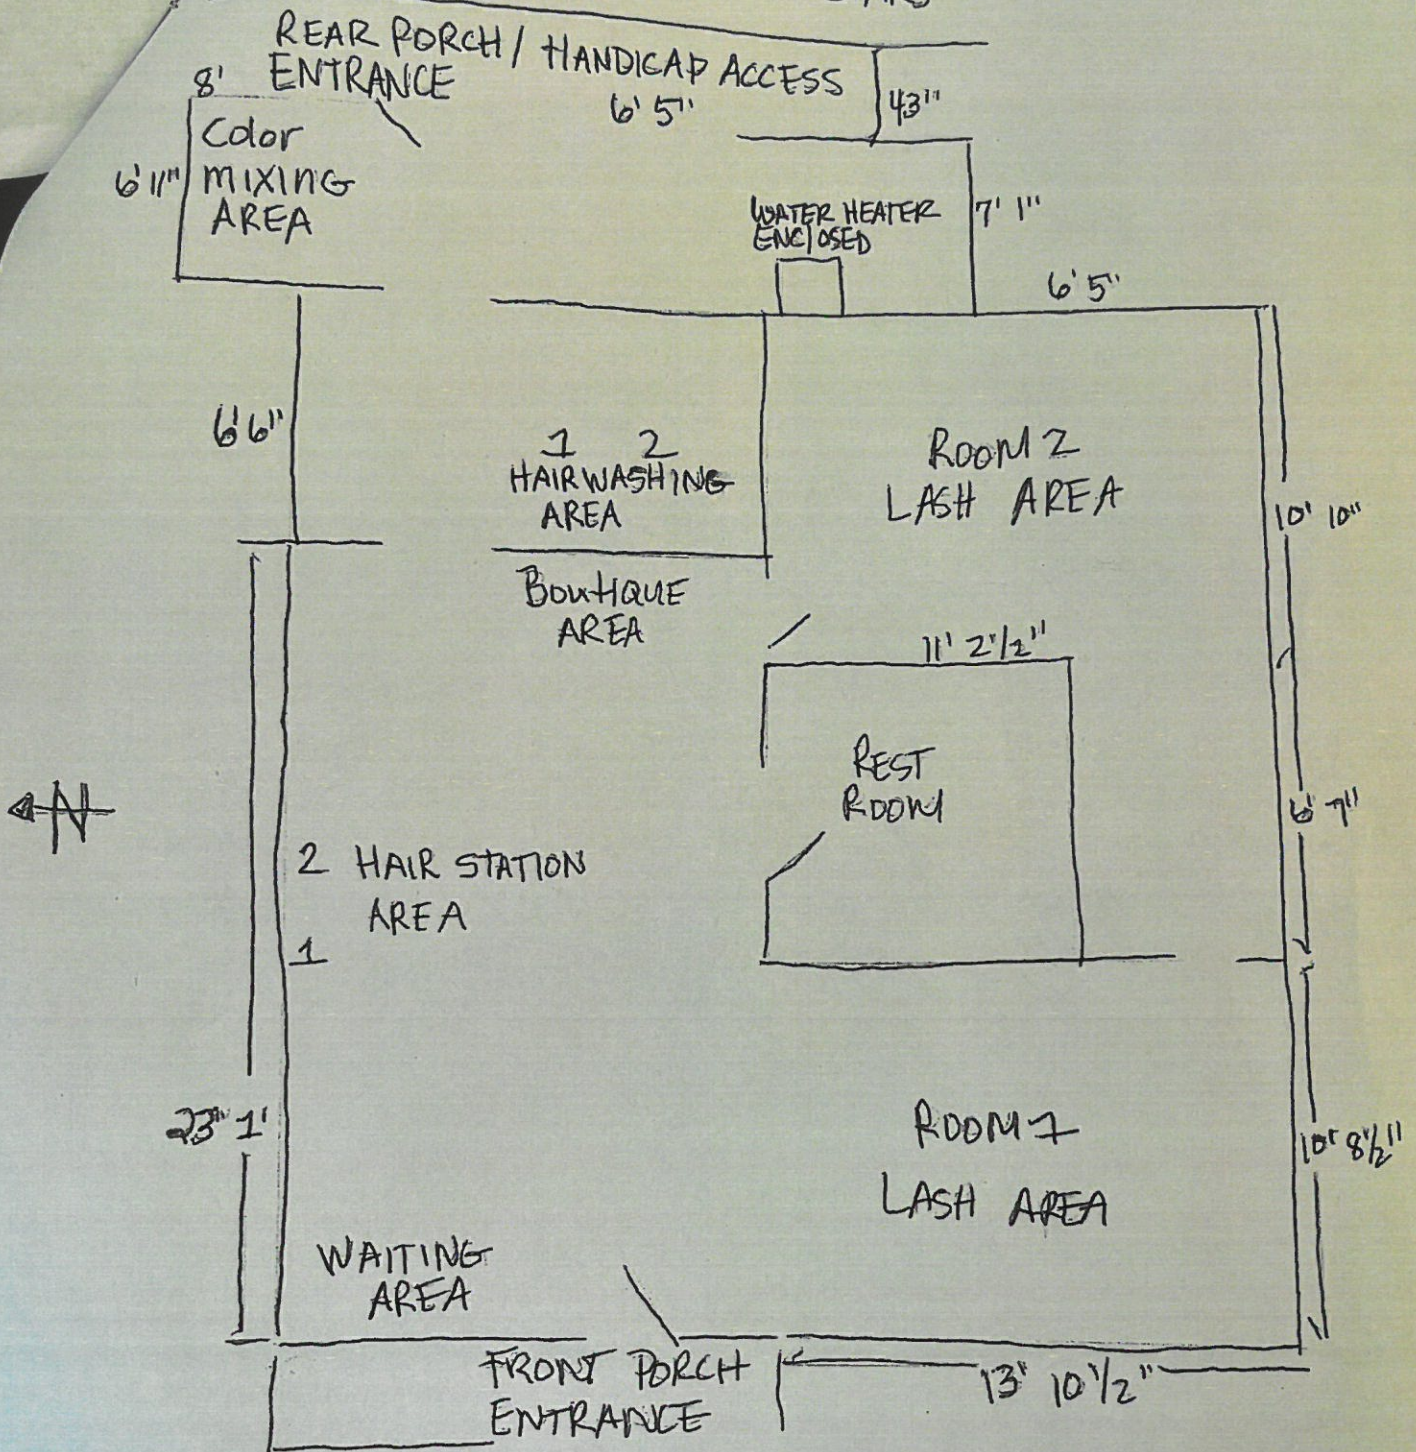 REAR PORCH / HANDICAP ACCESS
ENTRANCE
8'
6' 5"
43"
Color
MIXING
AREA
6' 11"
WATER HEATER
ENCLOSED
7' 1"
6' 5"
6' 6"
1 2
HAIR WASHING
AREA
ROOM 2
LASH AREA
10' 10"
BOUTIQUE
AREA
11' 2 1/2"
REST
ROOM
N
6' 7"
2 HAIR STATION
AREA
1
23" 1'
ROOM 1
LASH AREA
10' 8 1/2"
WAITING
AREA
FRONT PORCH
ENTRANCE
13' 10 1/2"